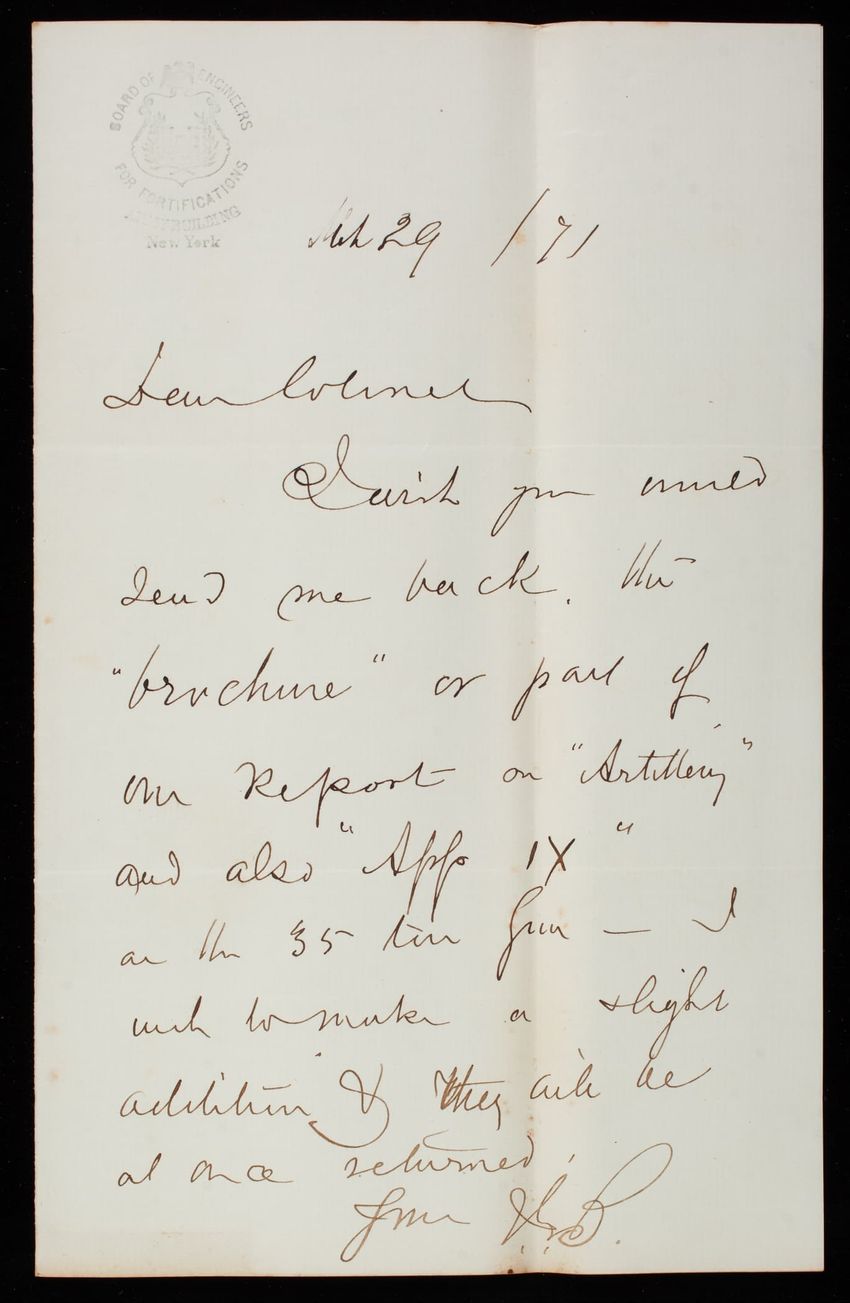 BOARD OF ENGINEERS
FOR FORTIFICATIONS
ARMY BUILDING
New York
Mch 29 /71
Dear Colonel
I wish you would
send me back. the
"brochure" or part of
our Report on "Artillery"
and also "App IX"
on the 35 ton Gun — I
wish to make a slight
addition & they will be
at once returned.
Yours